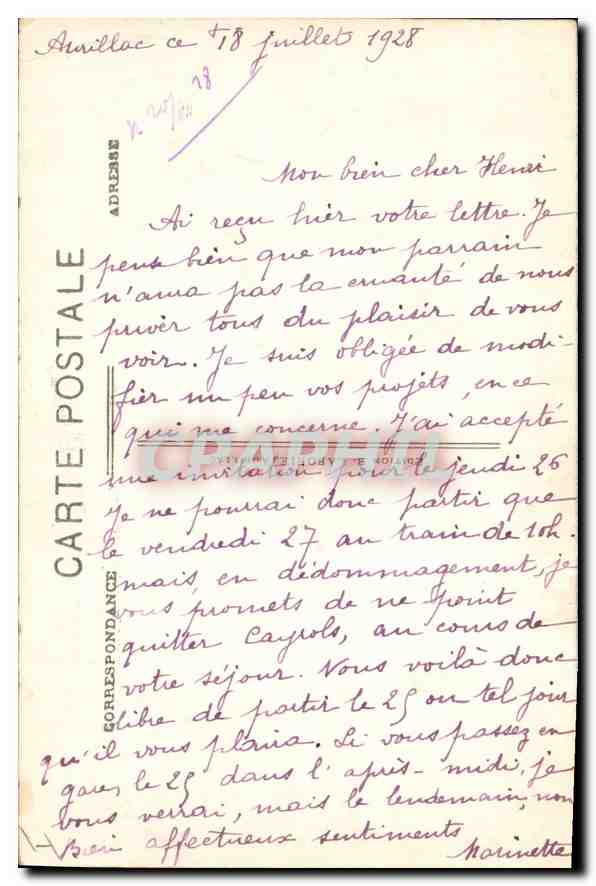 Aurillac ce 18 juillet 1928
Mon bien cher Henri
Ai reçu hier votre lettre. Je
pense bien que mon parrain
n'aura pas la cruauté de nous
priver tous du plaisir de vous
voir. Je suis obligée de modi-
fier un peu vos projets, en ce
qui me concerne. J'ai accepté
une invitation pour le jeudi 26
Je ne pourrai donc partir que
le vendredi 27 au train de 10h.
mais, en dédommagement, je
vous promets de ne point
quitter Cayrols, au cours de
votre séjour. Vous voilà donc
libre de partir le 25 ou tel jour
qu'il vous plaira. Si vous passez en
gare, le 25 dans l'après-midi, je
vous verrai, mais le lendemain, non
Bien affectueux sentiments
Marinette
CARTE POSTALE
CORRESPONDANCE
ADRESSE
CPAPHIL